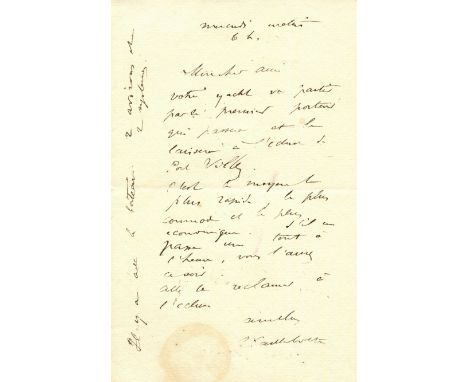 mercredi matin
6 h.
Mon cher ami
votre yacht va partir
par le premier porteur
qui passera et le
laissera à l'écluse de
Port Villez.
C'est le moyen le
plus rapide, le plus
commode et le plus
économique. S'il en
passe un tout à
l'heure, vous l'aurez
ce soir.
allez le réclamer à
l'écluse
Il y a avec le bateau 2 avirons
2